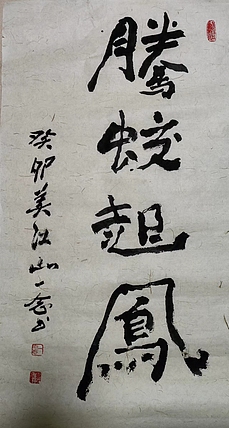 騰蛟起鳳
癸卯美江山一